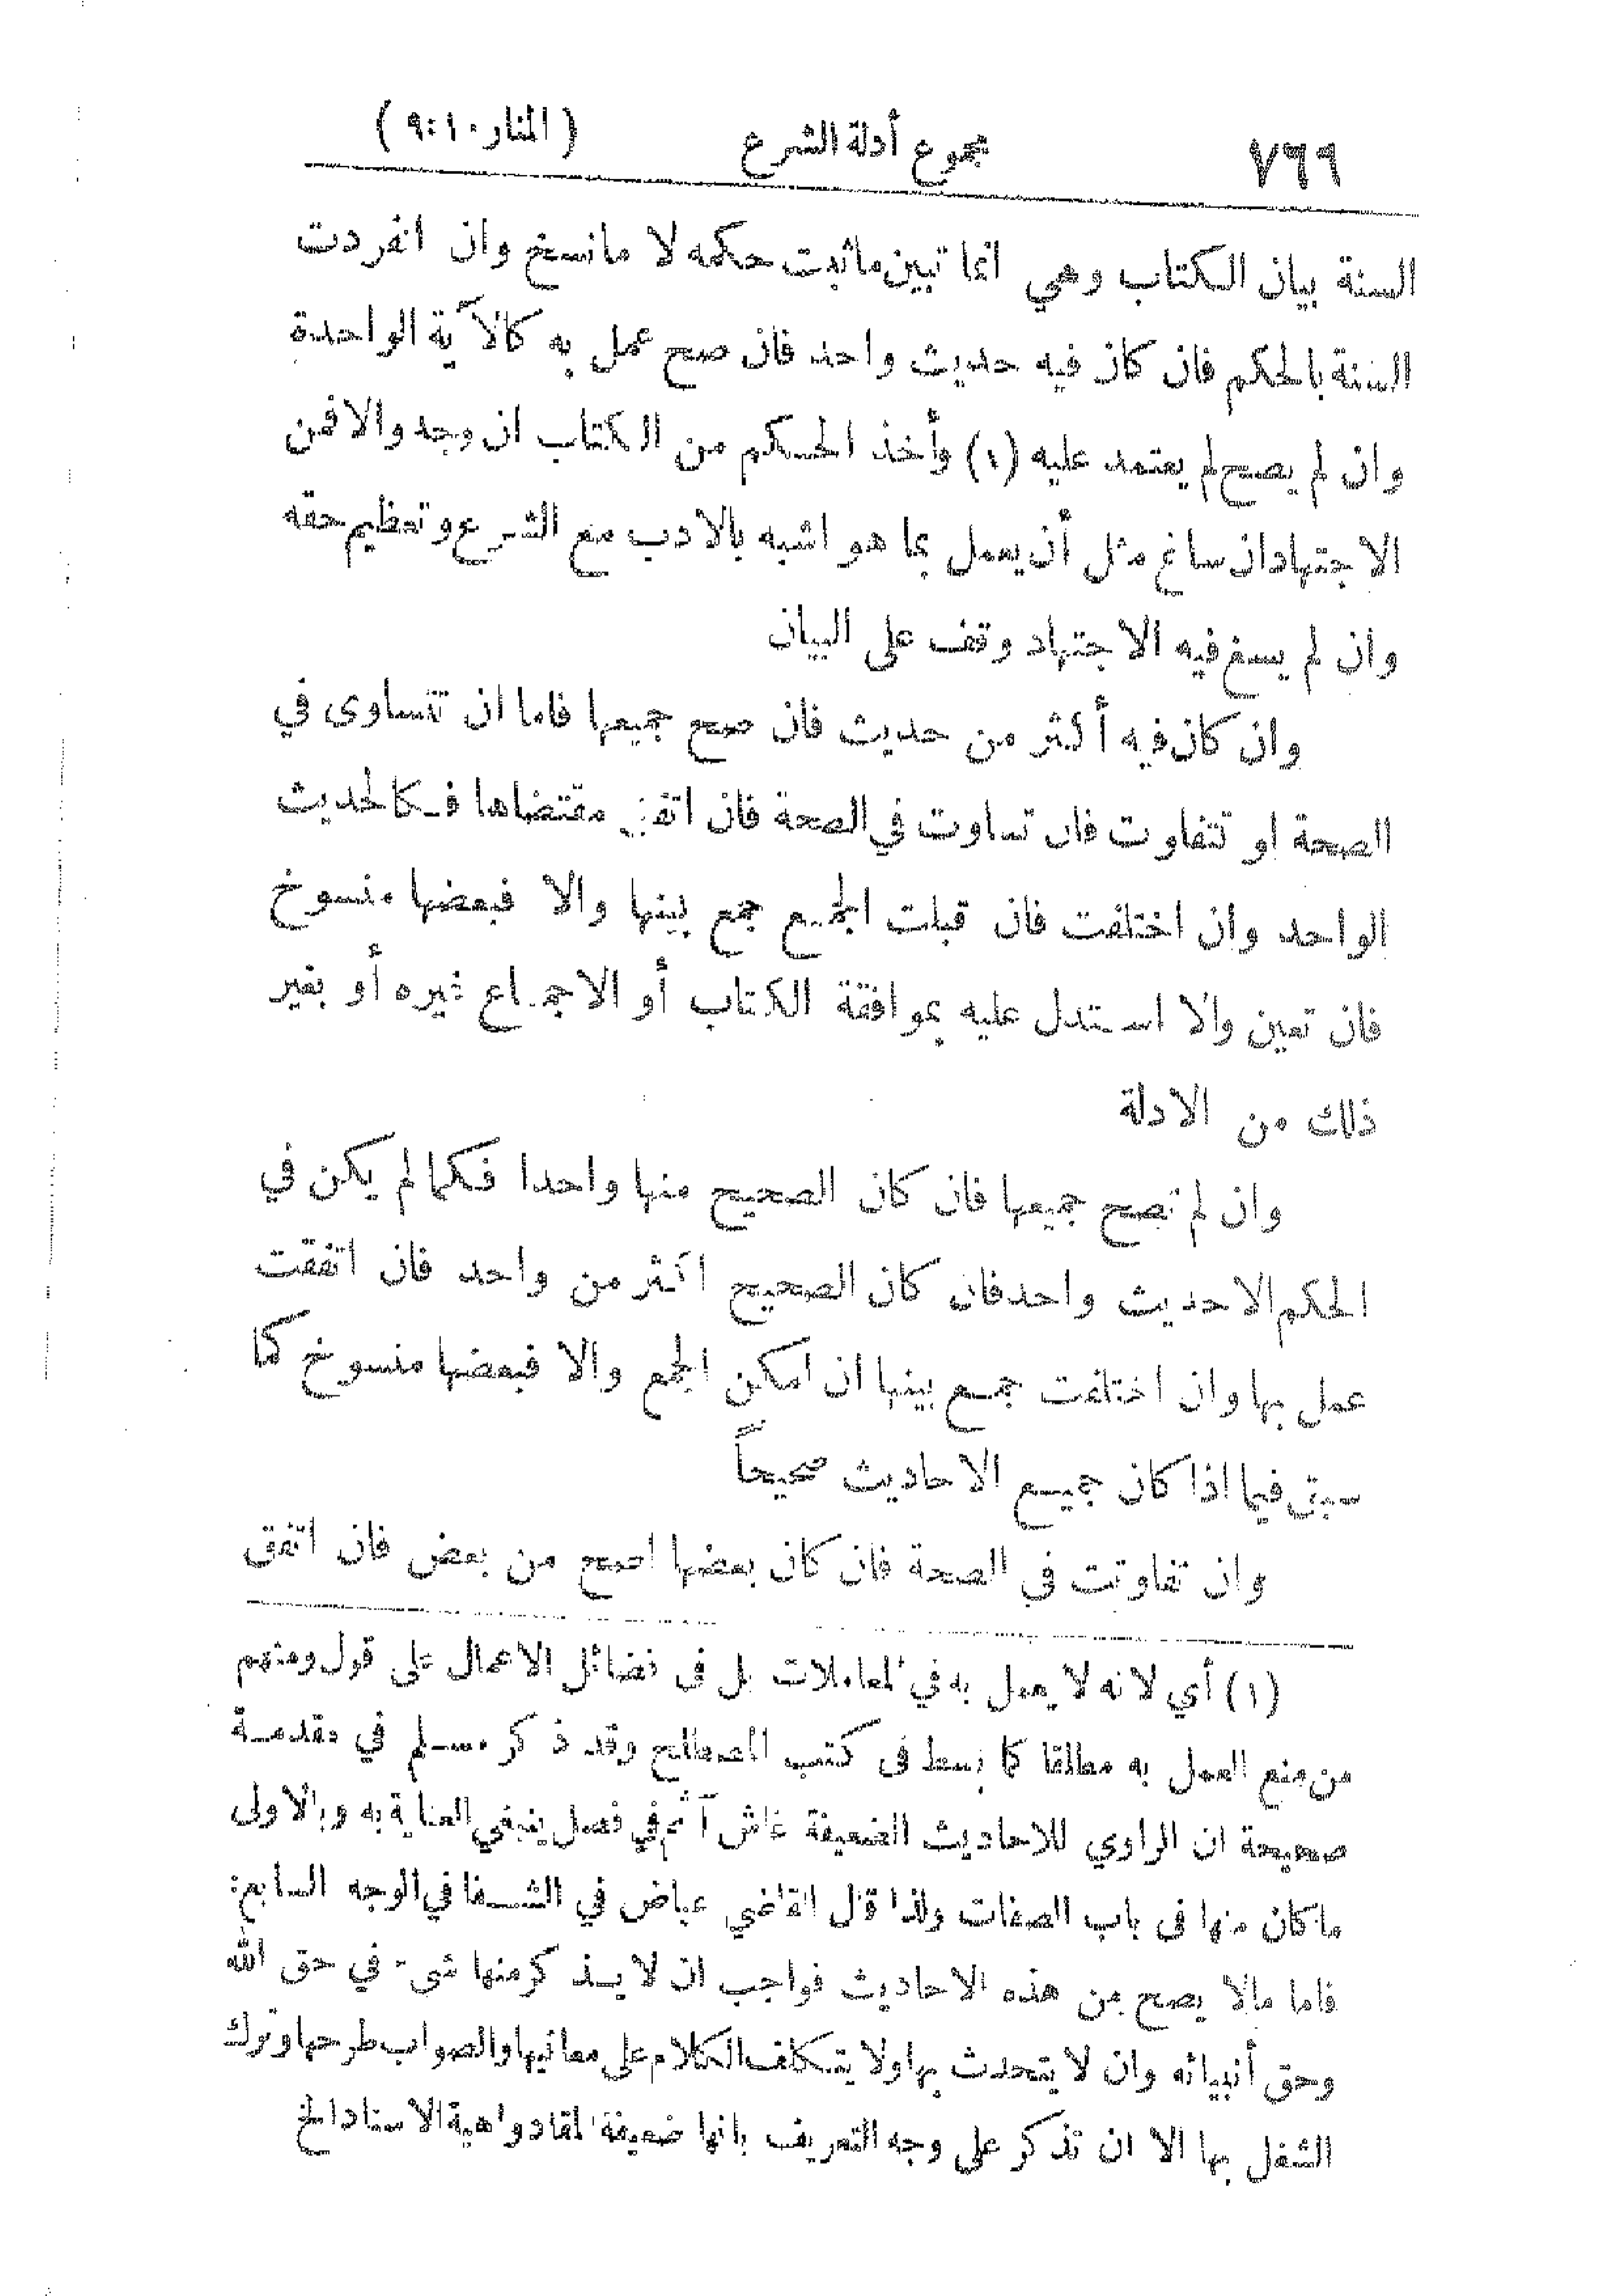 ٧٦٩ مجموع أدلة الشرع (المنار ٩:١٠)
السنة بيان الكتاب وهي انما تبين ما ثبت حكمه لا ما نسخ وان انفردت
السنة بالحكم فان كان فيه حديث واحد فان صح عمل به كالآية الواحدة
وان لم يصح لم يعتمد عليه (١) وأخذ الحكم من الكتاب ان وجد والا فمن
الاجتهاد ان ساغ مثل أن يعمل بما هو اشبه بالادب مع الشرع وتعظيم حقه
وان لم يسغ فيه الاجتهاد وقف على البيان
وان كان فيه أكثر من حديث فان صح جميعها فاما ان تتساوى في
الصحة او تتفاوت فان تساوت في الصحة فان اتفق مقتضاها فكالحديث
الواحد وان اختلفت فان قبلت الجمع جمع بينها والا فبعضها منسوخ
فان تعين والا استدل عليه بموافقة الكتاب أو الاجماع غيره أو بغير
ذلك من الادلة
وان لم تصح جميعها فان كان الصحيح منها واحدا فكما لم يكن في
الحكم الا حديث واحد فان كان الصحيح اكثر من واحد فان اتفقت
عمل بها وان اختلفت جمع بينها ان امكن الجمع والا فبعضها منسوخ كما
سبق فيما اذا كان جميع الاحاديث صحيحاً
وان تفاوتت في الصحة فان كان بعضها اصح من بعض فان اتفق
(١) أي لانه لا يعمل به في المعاملات بل في فضائل الاعمال على قول ومنهم
من منع العمل به مطلقا كما بسط في كتب المصطلح وقد ذكر مسلم في مقدمة
صحيحة ان الراوي للاحاديث الضعيفة غاش آثم في فصل ينبغي العناية به وبالاولى
ما كان منها في باب الصفات ولذا قال القاضي عياض في الشفا في الوجه السابع:
فاما مالا يصح من هذه الاحاديث فواجب ان لا يذكر منها شيء في حق الله
وحق أنبيائه وان لا يتحدث بها ولا يتكلف الكلام على معانيها والصواب طرحها وترك
الشغل بها الا ان تذكر على وجه التعريف بانها ضعيفة المقاد واهية الاسناد الخ